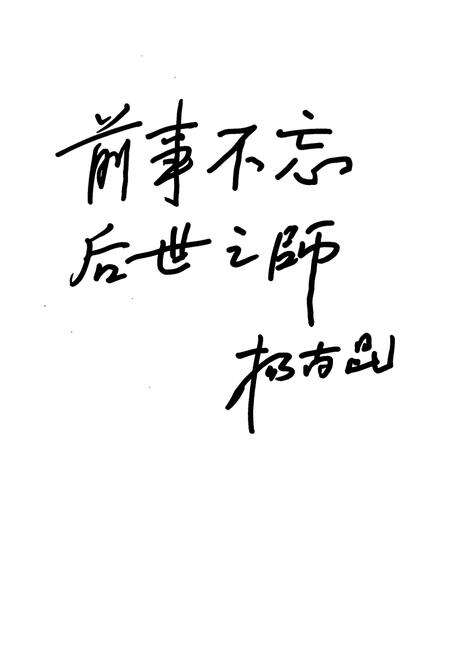 前事不忘
后世之師
杨尚昆